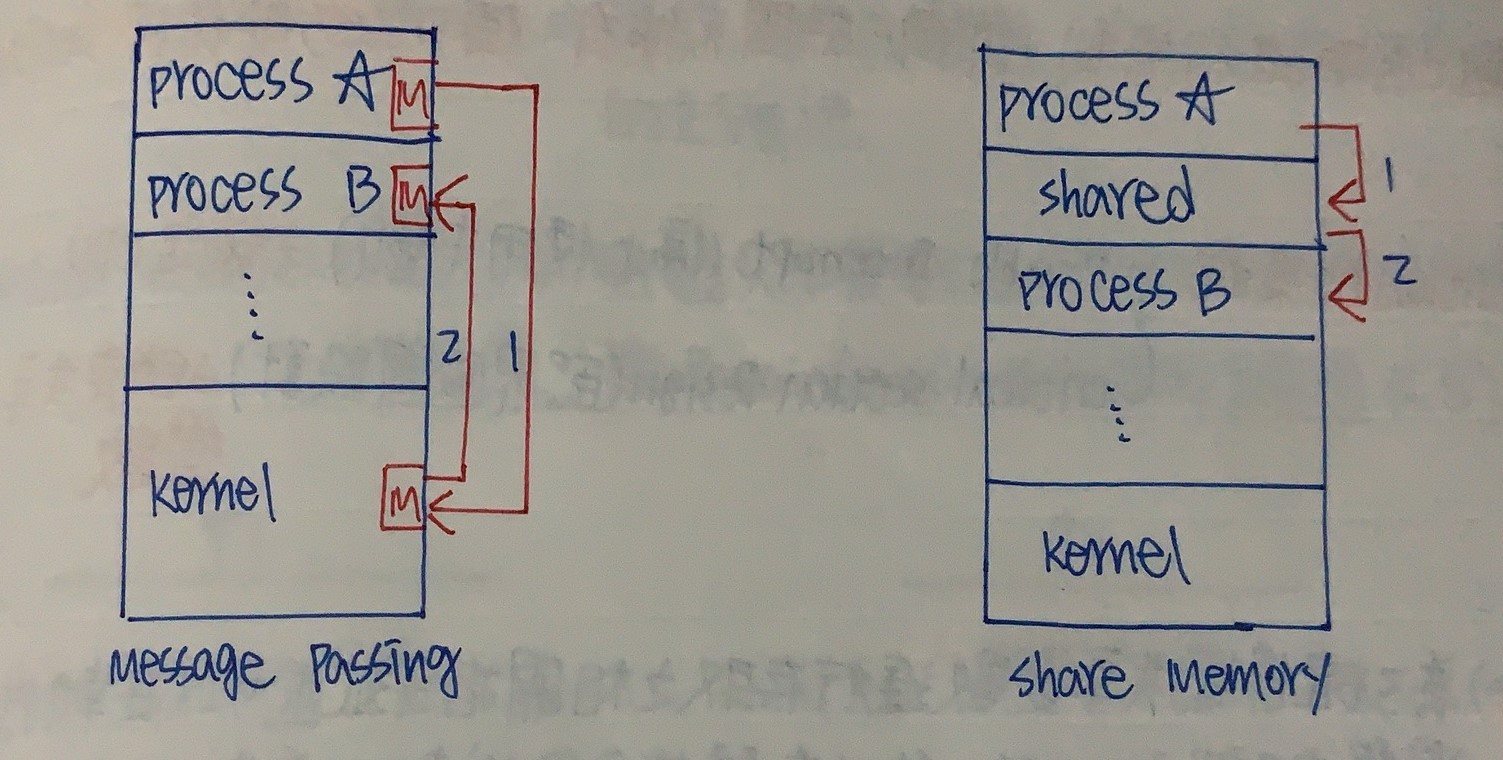 process A M
process B M
2 1
kernel M
Message Passing
process A
1
shared
2
process B
kernel
share Memory